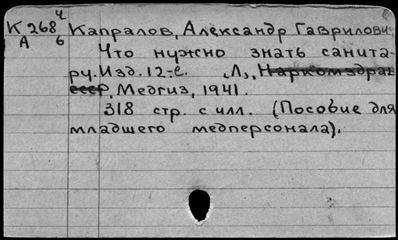 К 268 4 Капралов, Александр Гаврилович
А 6
Что нужно знать санита-
ру. Изд. 12-е. Л., Наркомздрав
СССР, Медгиз, 1941.
318 стр. с илл. (Пособие для
младшего медперсонала).